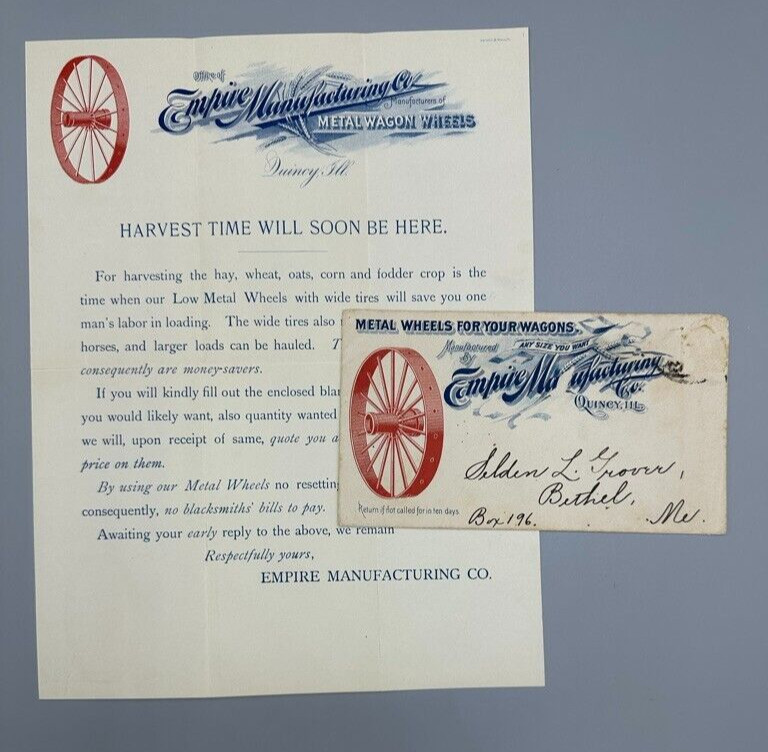 Office of
Empire Manufacturing Co.
Manufacturers of
METAL WAGON WHEELS
Quincy, Ill.
HARVEST TIME WILL SOON BE HERE.
For harvesting the hay, wheat, oats, corn and fodder crop is the
time when our Low Metal Wheels with wide tires will save you one
man's labor in loading. The wide tires also
horses, and larger loads can be hauled.
consequently are money-savers.
If you will kindly fill out the enclosed
you would likely want, also quantity wanted
we will, upon receipt of same, quote you a
price on them.
By using our Metal Wheels no resetting
consequently, no blacksmiths' bills to pay.
Awaiting your early reply to the above, we remain
Respectfully yours,
EMPIRE MANUFACTURING CO.
METAL WHEELS FOR YOUR WAGONS.
ANY SIZE YOU WANT
Manufactured
By
Empire Manufacturing
Co.
QUINCY, ILL.
Selden L. Grover,
Bethel,
Return if not called for in ten days
Box 196. Me.